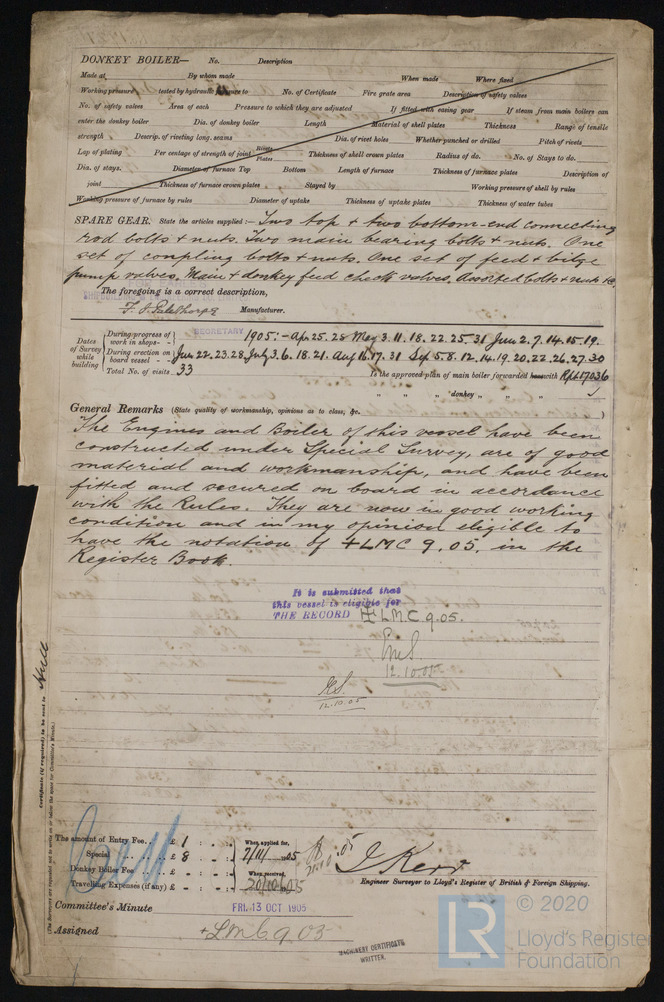 DONKEY BOILER— No. Description
Made at By whom made When made Where fixed
Working pressure tested by hydraulic pressure to No. of Certificate Fire grate area Description of safety valves
No. of safety valves Area of each Pressure to which they are adjusted If fitted with easing gear If steam from main boilers can
enter the donkey boiler Dia. of donkey boiler Length Material of shell plates Thickness Range of tensile
strength Descrip. of riveting long. seams Dia. of rivet holes Whether punched or drilled Pitch of rivets
Lap of plating Per centage of strength of joint Rivets Plates Thickness of shell crown plates Radius of do. No. of Stays to do.
Dia. of stays. Diameter of furnace Top Bottom Length of furnace Thickness of furnace plates Description of
joint Thickness of furnace crown plates Stayed by Working pressure of shell by rules
Working pressure of furnace by rules Diameter of uptake Thickness of uptake plates Thickness of water tubes
SPARE GEAR. State the articles supplied:— Two top + two bottom-end connecting
rod bolts + nuts. Two main bearing bolts + nuts. One
set of coupling bolts + nuts. One set of feed + bilge
pump valves. Main + donkey feed check valves. Assorted bolts + nuts &c.
The foregoing is a correct description,
Manufacturer.
SECRETARY
Dates of Survey while building
During progress of work in shops - - 1905:- Ap. 25. 28 May 3. 11. 18. 22. 25. 31 June 2. 7. 14. 15. 19.
During erection on board vessel - - Jun 22. 23. 28. July 3. 6. 18. 21. Aug 16. 17. 31 Sep 5. 8. 12. 14. 19. 20. 22. 26. 27. 30
Total No. of visits 33 Is the approved plan of main boiler forwarded herewith Rpt 17036
" " " donkey " "
General Remarks (State quality of workmanship, opinions as to class, &c.
The Engines and Boiler of this vessel have been
constructed under Special Survey, are of good
material and workmanship, and have been
fitted and secured on board in accordance
with the Rules. They are now in good working
condition and in my opinion eligible to
have the notation of +LMC 9.05. in the
Register Book.
It is submitted that
this vessel is eligible for
THE RECORD +LMC 9.05.
12.10.05
12.10.05
Certificate (if required) to be sent to Hull
(The Surveyors are requested not to write on or below the space for Committee's Minute.)
The amount of Entry Fee.. £ 1 : - : - When applied for,
Special .. .. .. £ 8 : - : - 7/10/1905
Donkey Boiler Fee .. .. £ - : - : - When received,
Travelling Expenses (if any) £ - : - : - 20/10/05
J Kerr
Engineer Surveyor to Lloyd's Register of British & Foreign Shipping.
Committee's Minute FRI. 13 OCT 1905
Assigned +LMC 9.05
MACHINERY CERTIFICATE
WRITTEN.
© 2020
LR
Lloyd's Register
Foundation